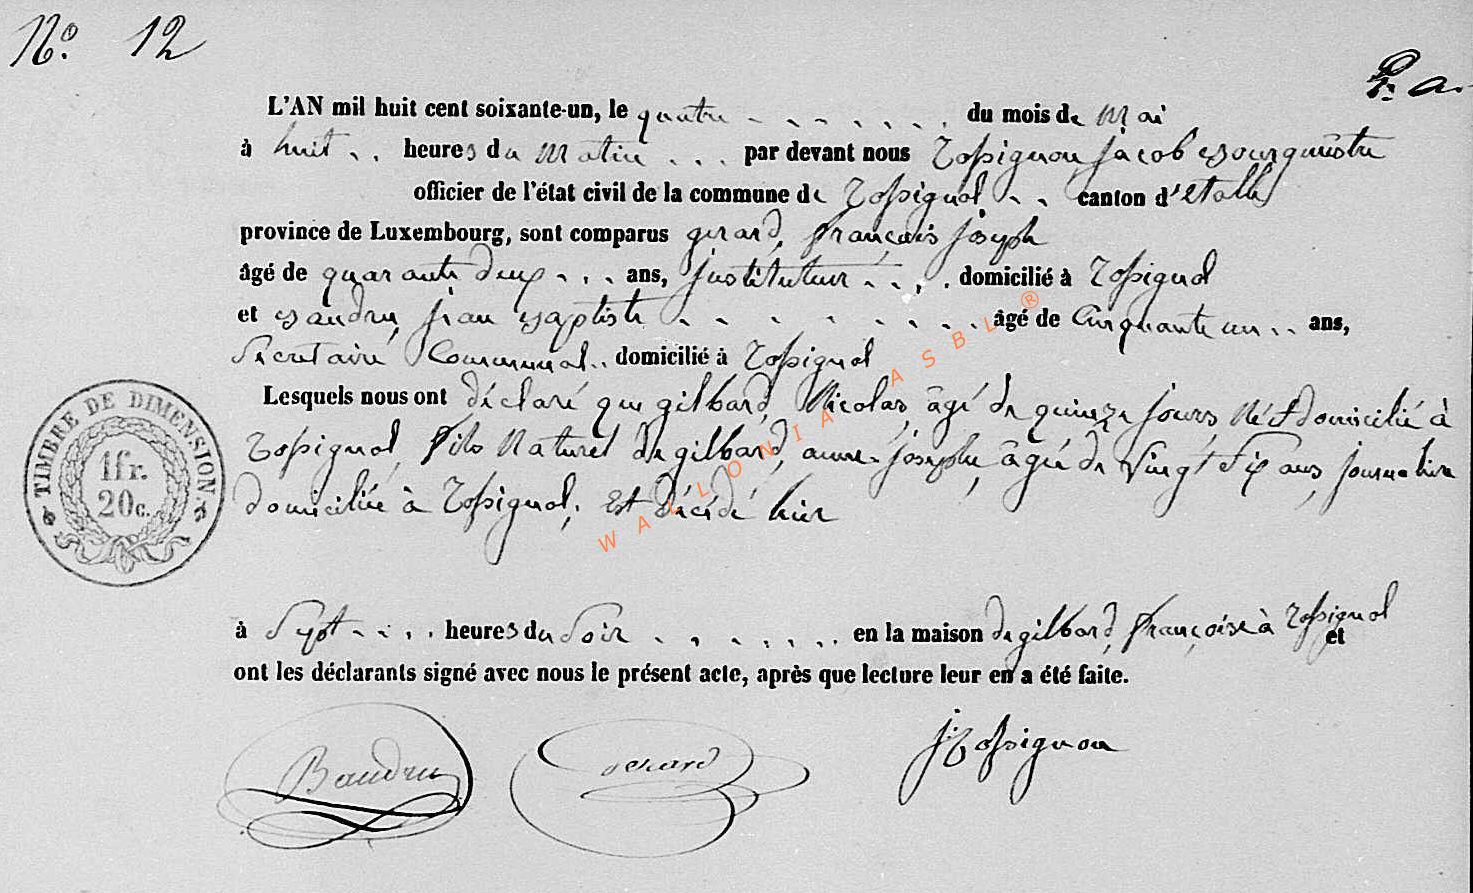 N.° 12
L'AN mil huit cent soixante-un, le quatre du mois de Mai
à huit heures du Matin par devant nous Rossignon, Jacob Bourgmestre
officier de l'état civil de la commune de Rossignol canton d'Etalle
province de Luxembourg, sont comparus gerard, françois Joseph
âgé de quarante deux ans, Instituteur domicilié à Rossignol
et Baudru, jean Baptiste âgé de Cinquante un ans,
Secretaire Communal domicilié à Rossignol
Lesquels nous ont déclaré que gilbard, Nicolas, âgé de quinze jours Né et domicilié à
Rossignol, fils Naturel de gilbard, anne-josephe, âgée de Vingt Six ans, journalière
domiciliée à Rossignol, est décédé hier
à Sept heures du Soir en la maison de gilbard, françoise à Rossignol et
ont les déclarants signé avec nous le présent acte, après que lecture leur en a été faite.
Baudru gerard J: Rossignon
TIMBRE DE DIMENSION.
1fr.
20c.
WALLONIA ASBL ®